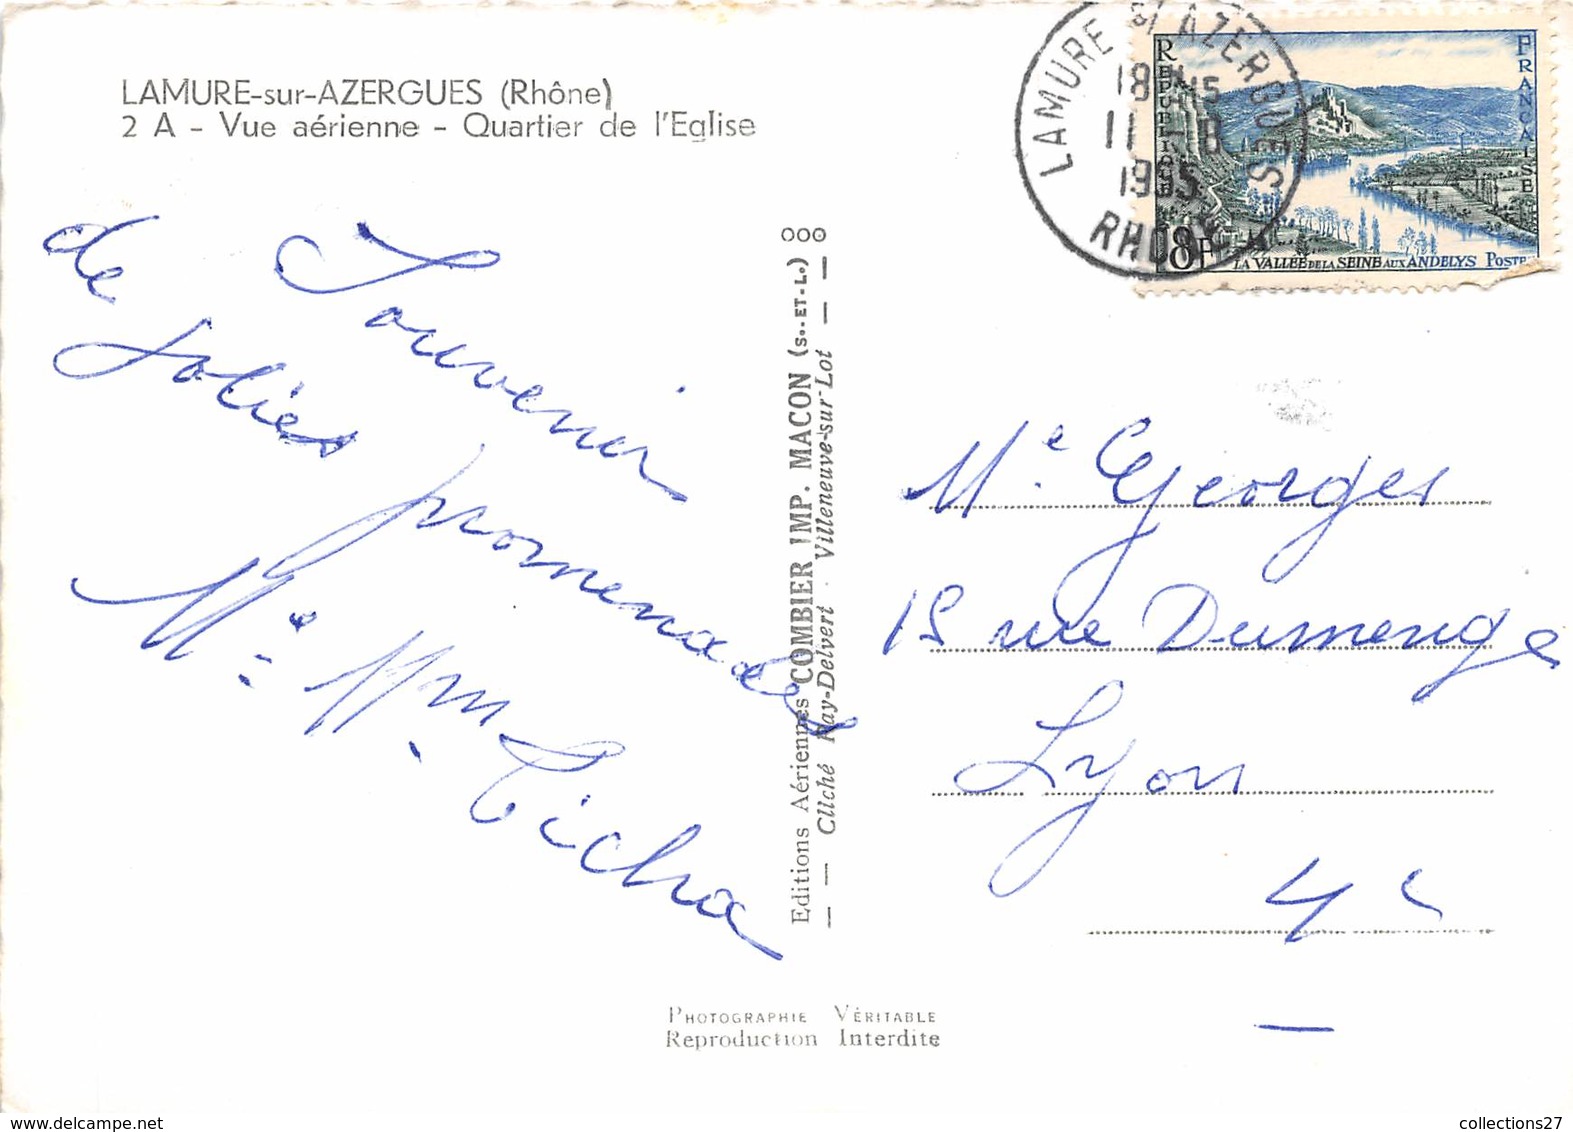 LAMURE-sur-AZERGUES (Rhône)
2 A - Vue aérienne - Quartier de l'Eglise
LAMURE S/ AZERGUES
18H15
11 -8
1955
RHONE
REPUBLIQUE
FRANCAISE
18F
LA VALLEE DE LA SEINE AUX ANDELYS POSTE
Souvenir
de jolies
promenades
Editions Aériennes COMBIER IMP. MACON (S.-ET-L.) ooo
— — Cliché Ray-Delvert - Villeneuve-sur-Lot — —
Me Georges
15 rue Dumenge
Lyon
4e
PHOTOGRAPHIE VÉRITABLE
Reproduction Interdite
collections27